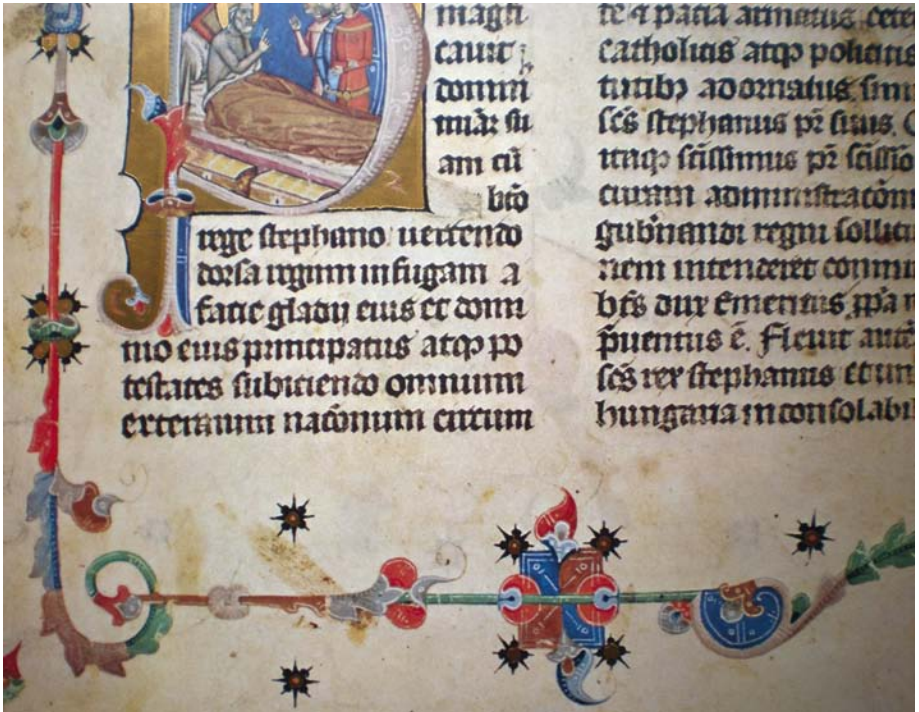 magfi
cauit
domin
miaꝫ su
am cū
bt̄o
rege stephano uertendo
dorsa regum in fugam a
facie gladij eius et domi
nio eius principatus atqꝫ po
testates subiciendo omnium
exterarum nac̄onum circum
te ⁊ pacīa armatus cete
catholicis atqꝫ politicis
tutibꝫ adornatus
sc̄s stephanus pr̄ suus.
itaqꝫ sc̄issimus pr̄ sc̄issio
curam administrac̄om
gub̄nandi regni sollici
nem intenderet
bt̄s dux Emericus
p̄uentus ē. Fleuit autē
sc̄s rex stephanus et un
hungaria inconsolabi